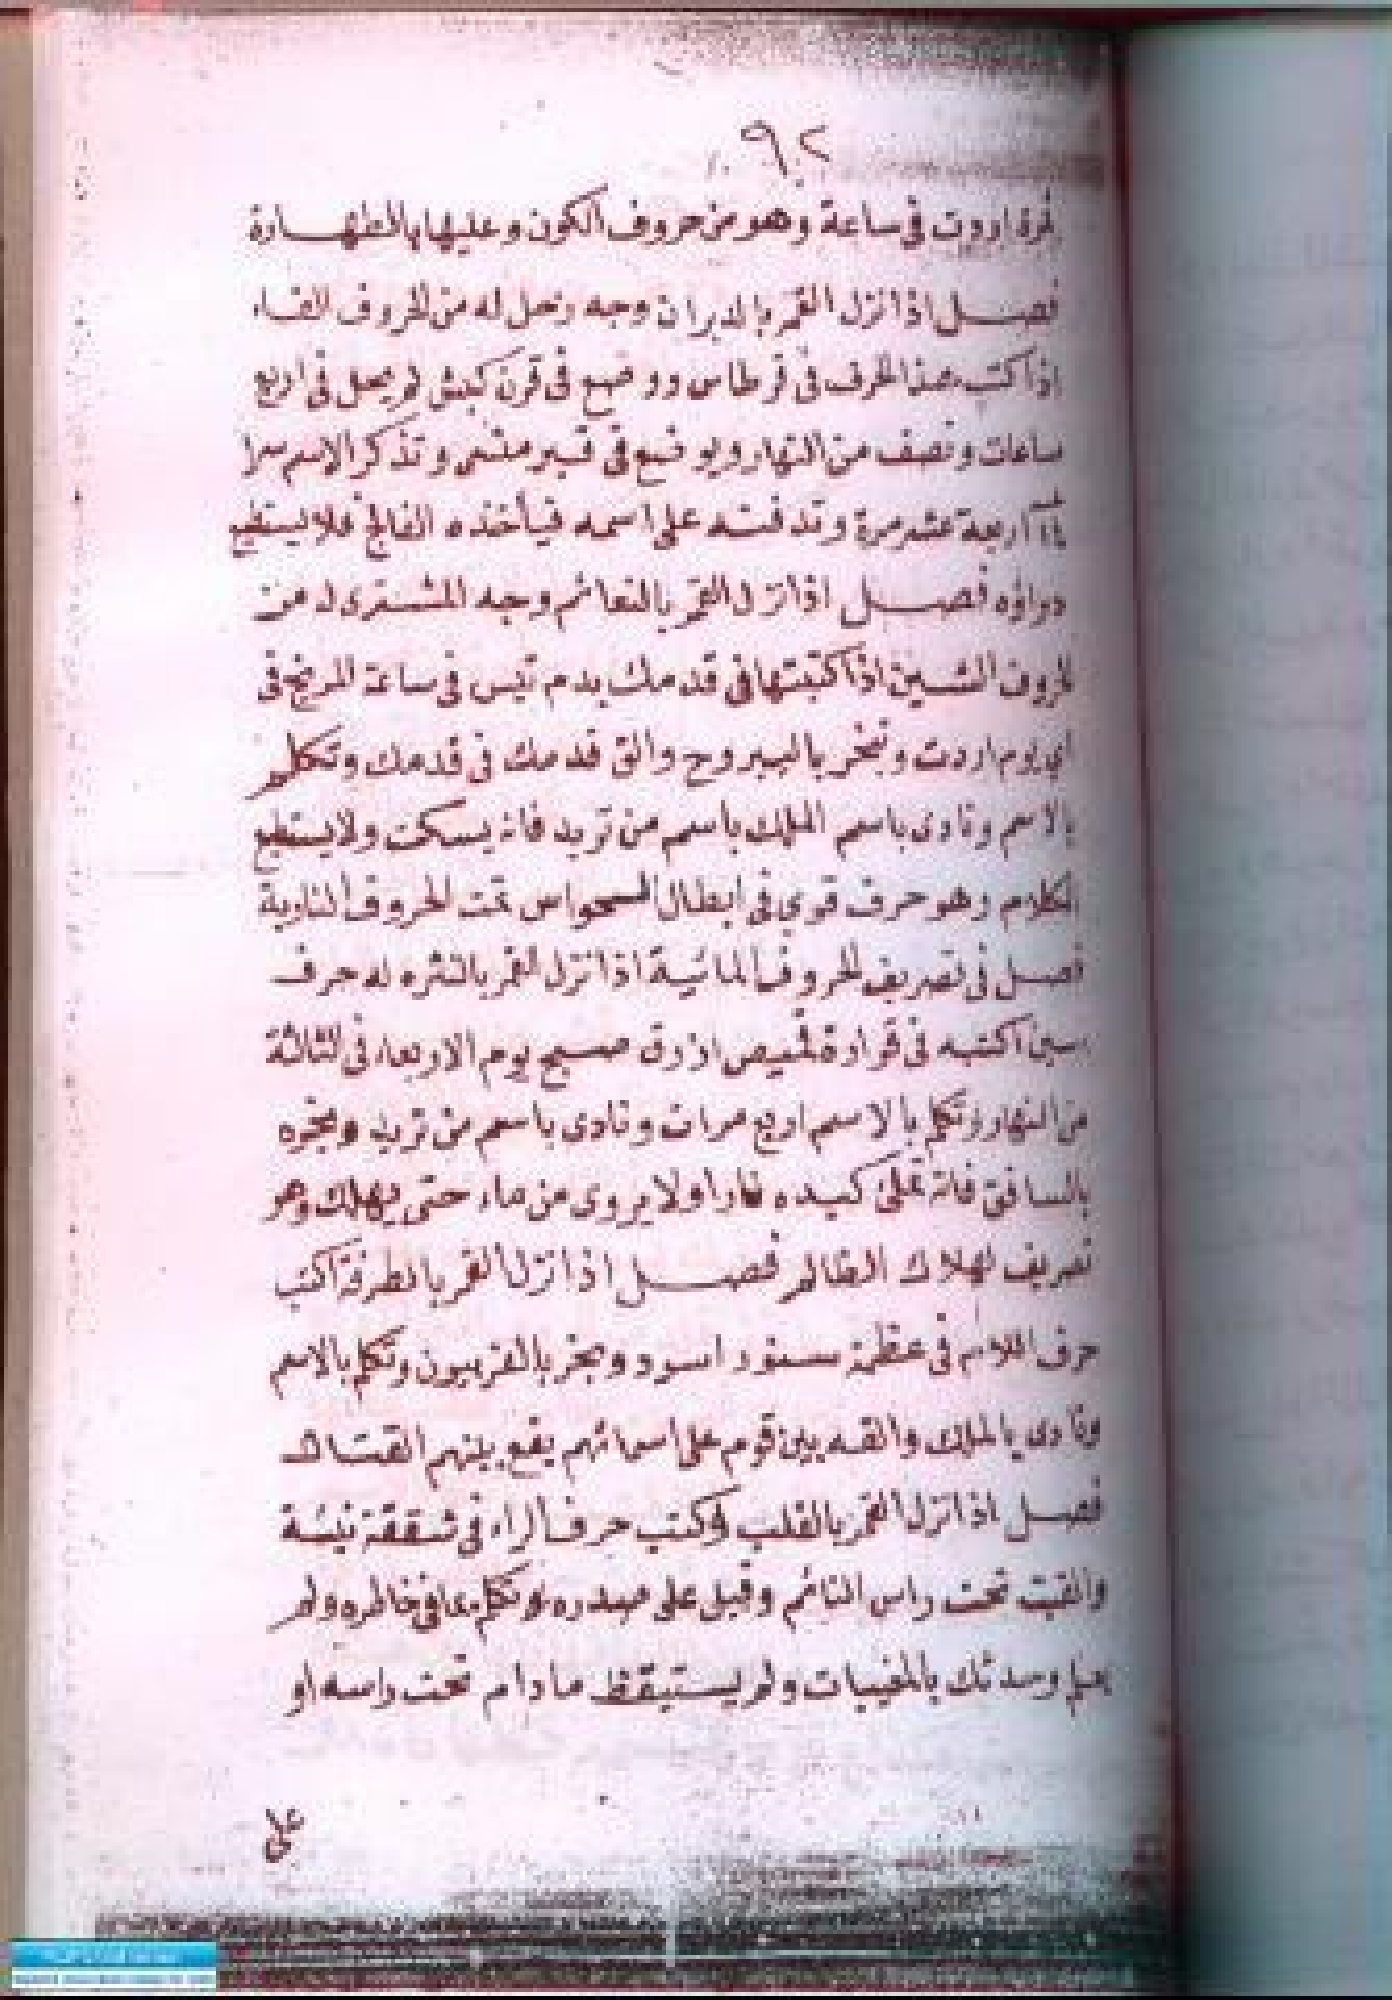 ٩٢
اردت في ساعة وهو من حروف الكون وعليها بالطهارة
فصل اذا نزل القمر بالدبران وجه زحل له من الحروف الفاء
اذا كتب هذا الحرف في قرطاس ووضع في قرن كبش لم يحل في اربع
ساعات ونصف من النهار ويوضع في قبر منسي وتذكر الاسم سرا
١٤ اربعة عشر مرة وتدفنه على اسمه فيأخذه الفالج فلا يستطيع
دواؤه فصل اذا نزل القمر بالنعائم وجه المشتري له من
الحروف الشين اذا كتبتها في قدمك بدم تيس في ساعة المريخ في
اي يوم اردت وتبخر باليبروح والق قدمك في قدمك وتكلم
بالاسم ونادى باسم الملك باسم من تريد فانه يسكت ولا يستطيع
الكلام وهو حرف قوي في ابطال الحواس تمت الحروف النارية
فصل في تصريف الحروف المائية اذا نزل القمر بالنثره له حرف
سين اكتبه في قوارة قميص ازرق صبيح يوم الاربعاء في الثالثة
من النهار وتكلم بالاسم اربع مرات ونادى باسم من تريد وبخره
فانه تملئ كبده نارا ولا يروى من ماء حتى يهلك وهو
تصريف لهلاك الظالم فصل اذا نزل القمر بالطرفة اكتب
حرف اللام في عظمة سنور اسود وبخر بالفربيون وتكلم بالاسم
ونادى بالملك والقه بين قوم على اسمائهم يقع بينهم القتال
فصل اذا نزل القمر بالقلب وكتب حرف الراء في شقفة نيئة
والقيت تحت راس النائم وقيل على صدره تكلم بما في خاطره ولم
يعلم وحدثك بالمغيبات ولم يستيقظ ما دام تحت راسه او
على